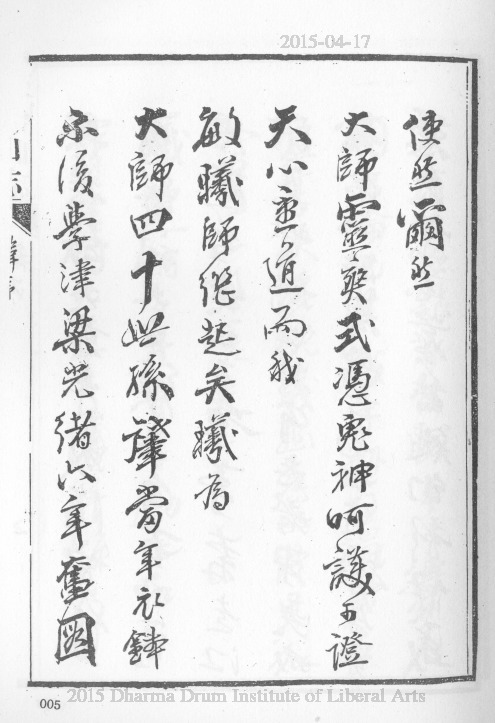 2015-04-17
使然爾然
大師靈爽式憑鬼神呵護可證
天心道而我
敏曦師繼起矣曦為
大師四十世孫肇當年衣鉢
示後學津梁光緒六年奮圖
005
2015 Dharma Drum Institute of Liberal Arts